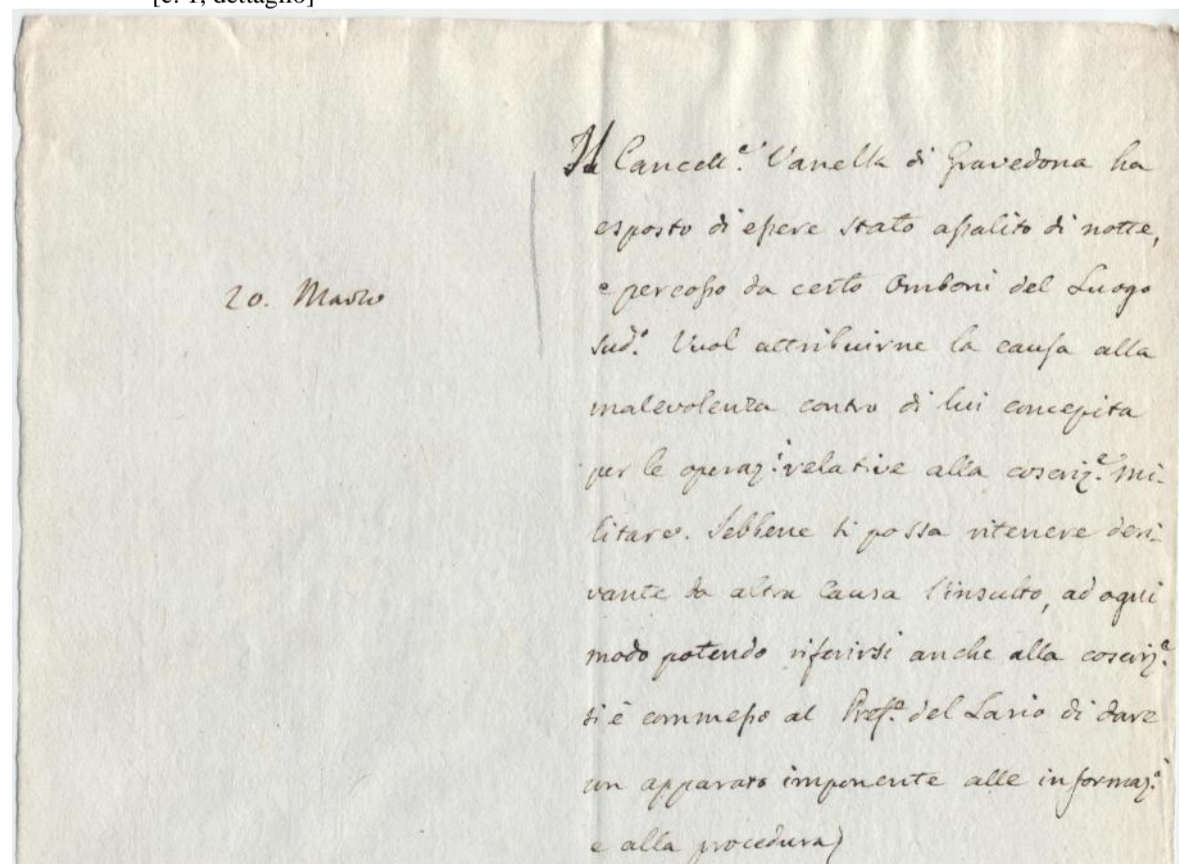 [c. 1, dettaglio]
20. Marzo
Il Cancell.e Vanella di Gravedona ha
esposto di essere stato assalito di notte,
e percosso da certo Omboni del Luogo
sud.o Vuol attribuirne la causa alla
malevolenza contro di lui concepita
per le operaz.i relative alla coscriz.e mi-
litare. Sebbene si possa ritenere deri-
vante da altra causa l'insulto, ad ogni
modo potendo riferirsi anche alla coscriz.e
si è commesso al Pref.o del Lario di dare
un apparato imponente alle informaz.i
e alla procedura)